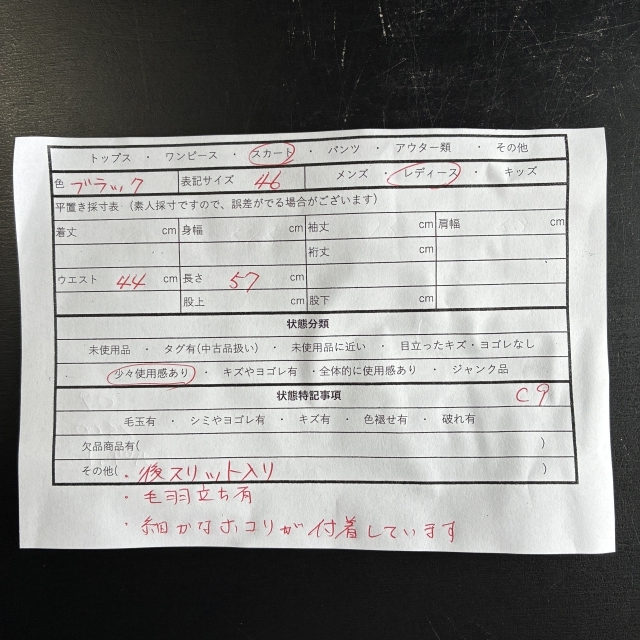 トップス ・ ワンピース ・ スカート ・ パンツ ・ アウター類 ・ その他
色 ブラック 表記サイズ 46 メンズ ・ レディース ・ キッズ
平置き採寸表 （素人採寸ですので、誤差がでる場合がございます）
着丈 cm 身幅 cm 袖丈 cm 肩幅 cm
裄丈 cm
ウエスト 44 cm 長さ 57 cm
股上 cm 股下 cm
状態分類
未使用品 ・ タグ有(中古品扱い) ・ 未使用品に近い ・ 目立ったキズ・ヨゴレなし
少々使用感あり ・ キズやヨゴレ有 ・全体的に使用感あり ・ ジャンク品
状態特記事項 C9
毛玉有 ・ シミやヨゴレ有 ・ キズ有 ・ 色褪せ有 ・ 破れ有
欠品商品有( )
その他( ・後スリット入り )
・毛羽立ち有
・細かなホコリが付着しています